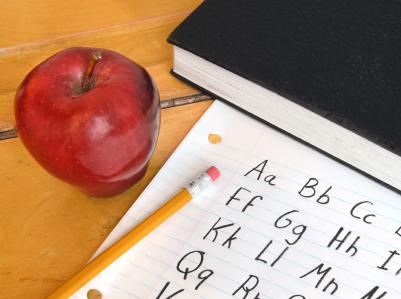 Aa Bb Cc
Ff Gg Hh
Kk Ll Mm
Qq Rr